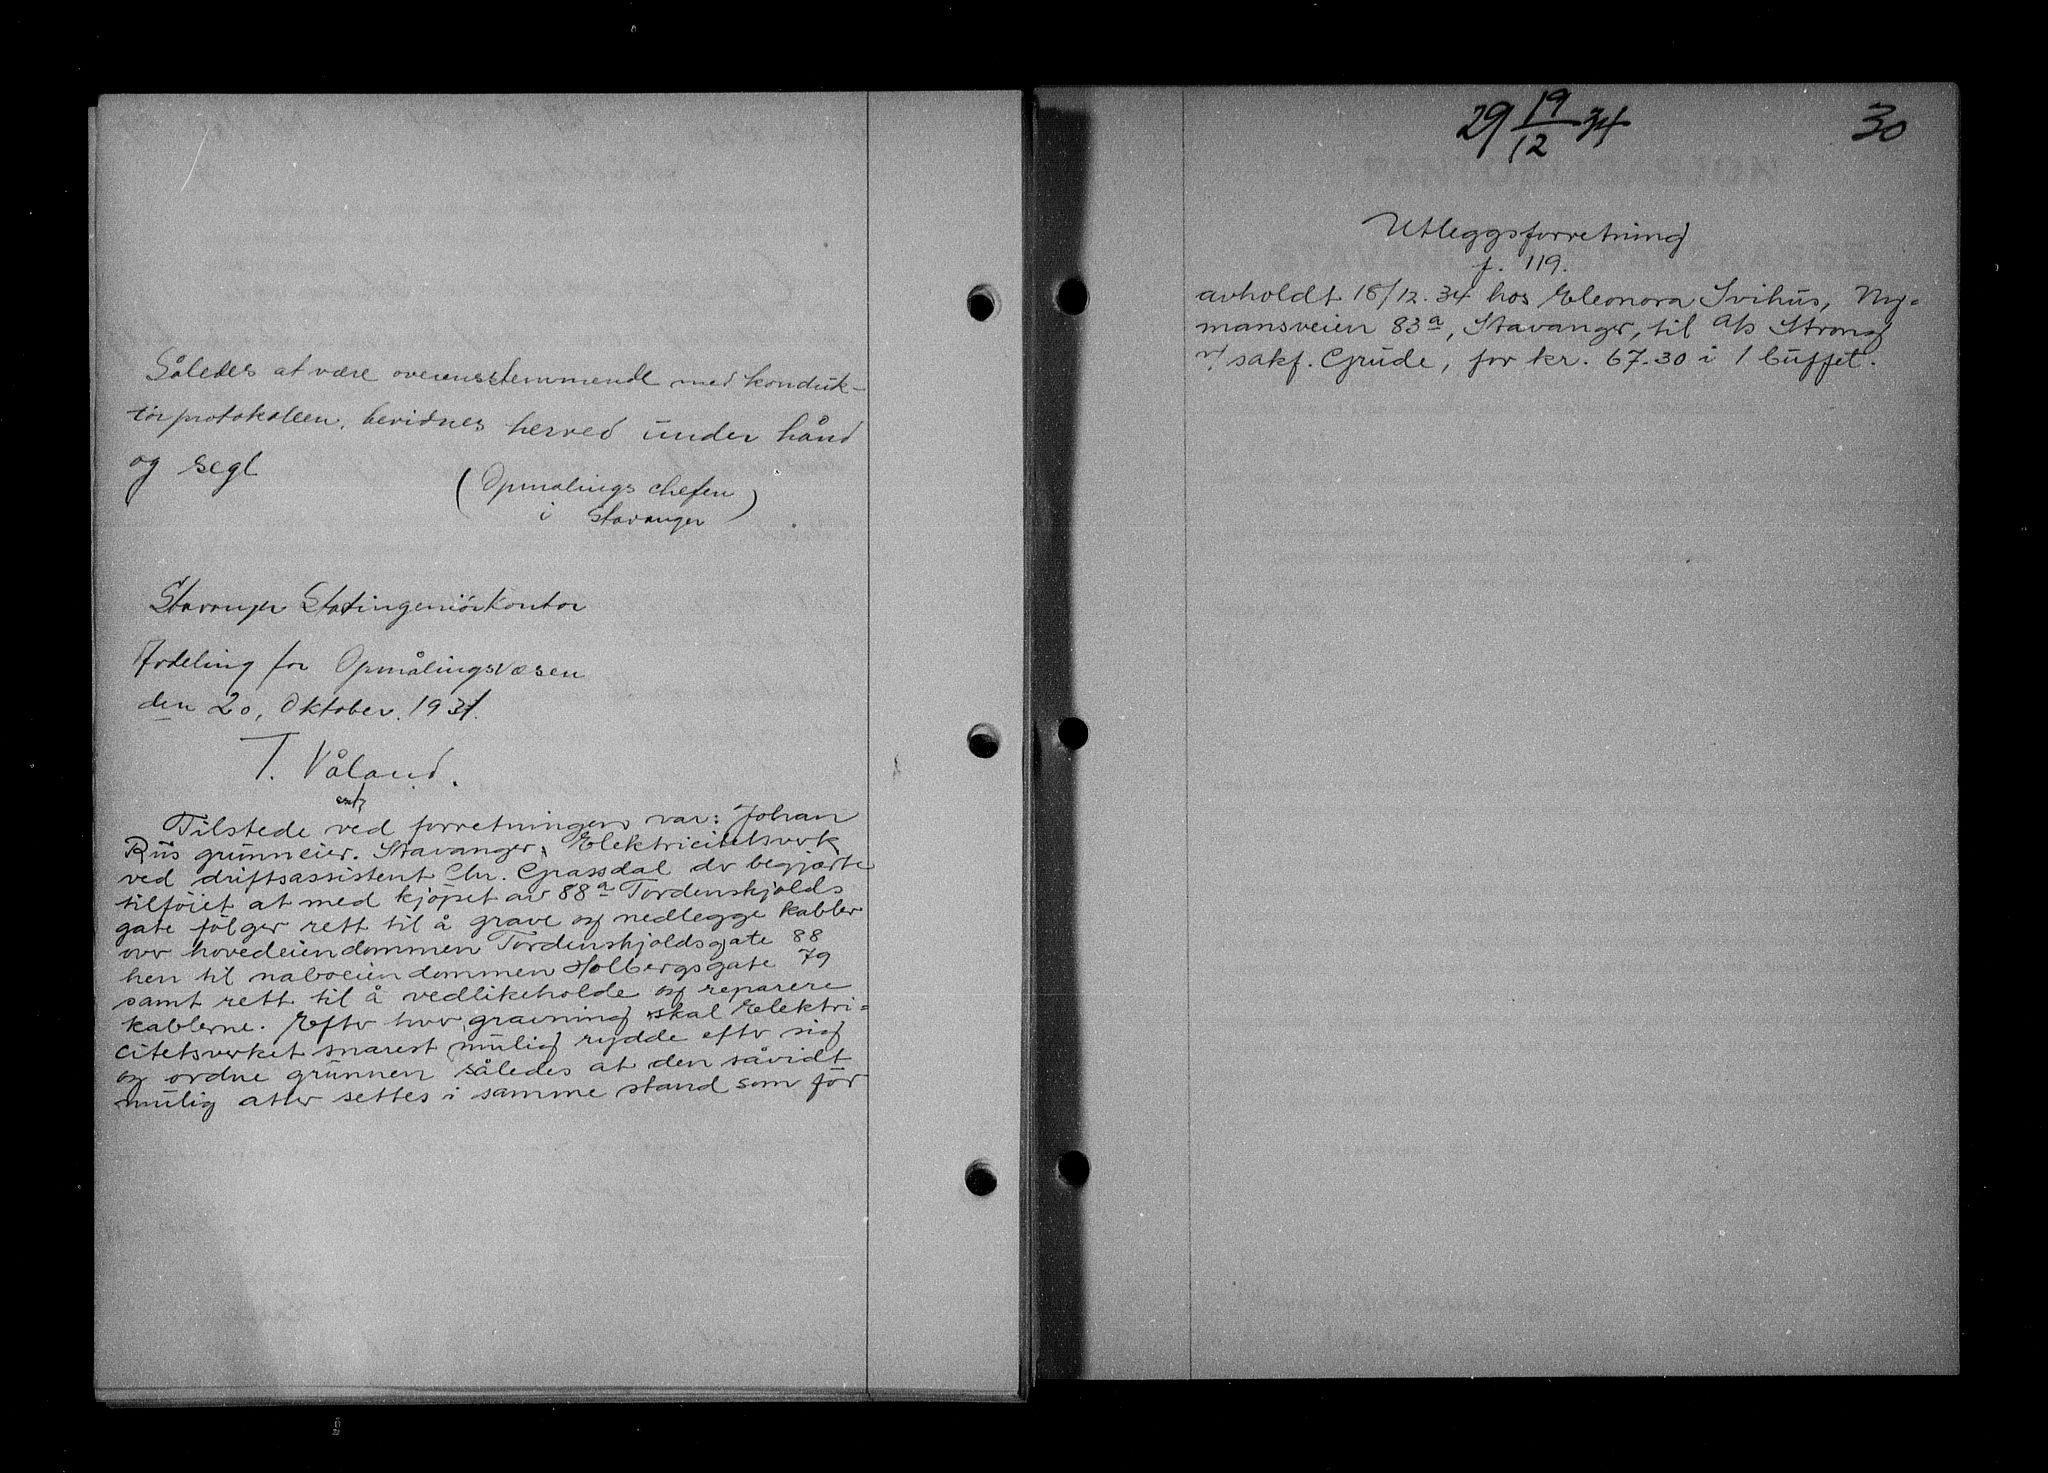 Således at være overensstemmende med konduk-
törprotokollen, bevidnes herved under hånd
og segl
(Opmalings chefen
i Stavanger)
Stavanger Stadingeniörkontor
Avdeling for Opmålingsvæsen
den 20, Oktober. 1931.
T. Våland.
Tilstede ved forretningen var: Johan
Riis grunneier. Stavanger Elektricitetsverk
ved driftsassistent Chr. Grassdal der begjærte
tilföiet at med kjöpet av 88a Tordenskjolds
gate fölger rett til å grave og nedlegge kabler
over hovedeiendommen Tordenskjoldsgate 88
hen til naboeiendommen Holbergsgate 79
samt rett til å vedlikeholde og reparere
kablerne. Efter hver gravning skal Elektri-
citetsverket snarest mulig rydde efter sig
og ordne grunnen således at den såvidt
mulig atter settes i samme stand som för
29 19/12 34
30
Utleggsforretning
f. 119.
avholdt 18/12.34 hos Eleonora Svihus, Ny-
mansveien 83a, Stavanger, til A/s Strong
v/ sakf. Grude, for kr. 67.30 i 1 buffet.